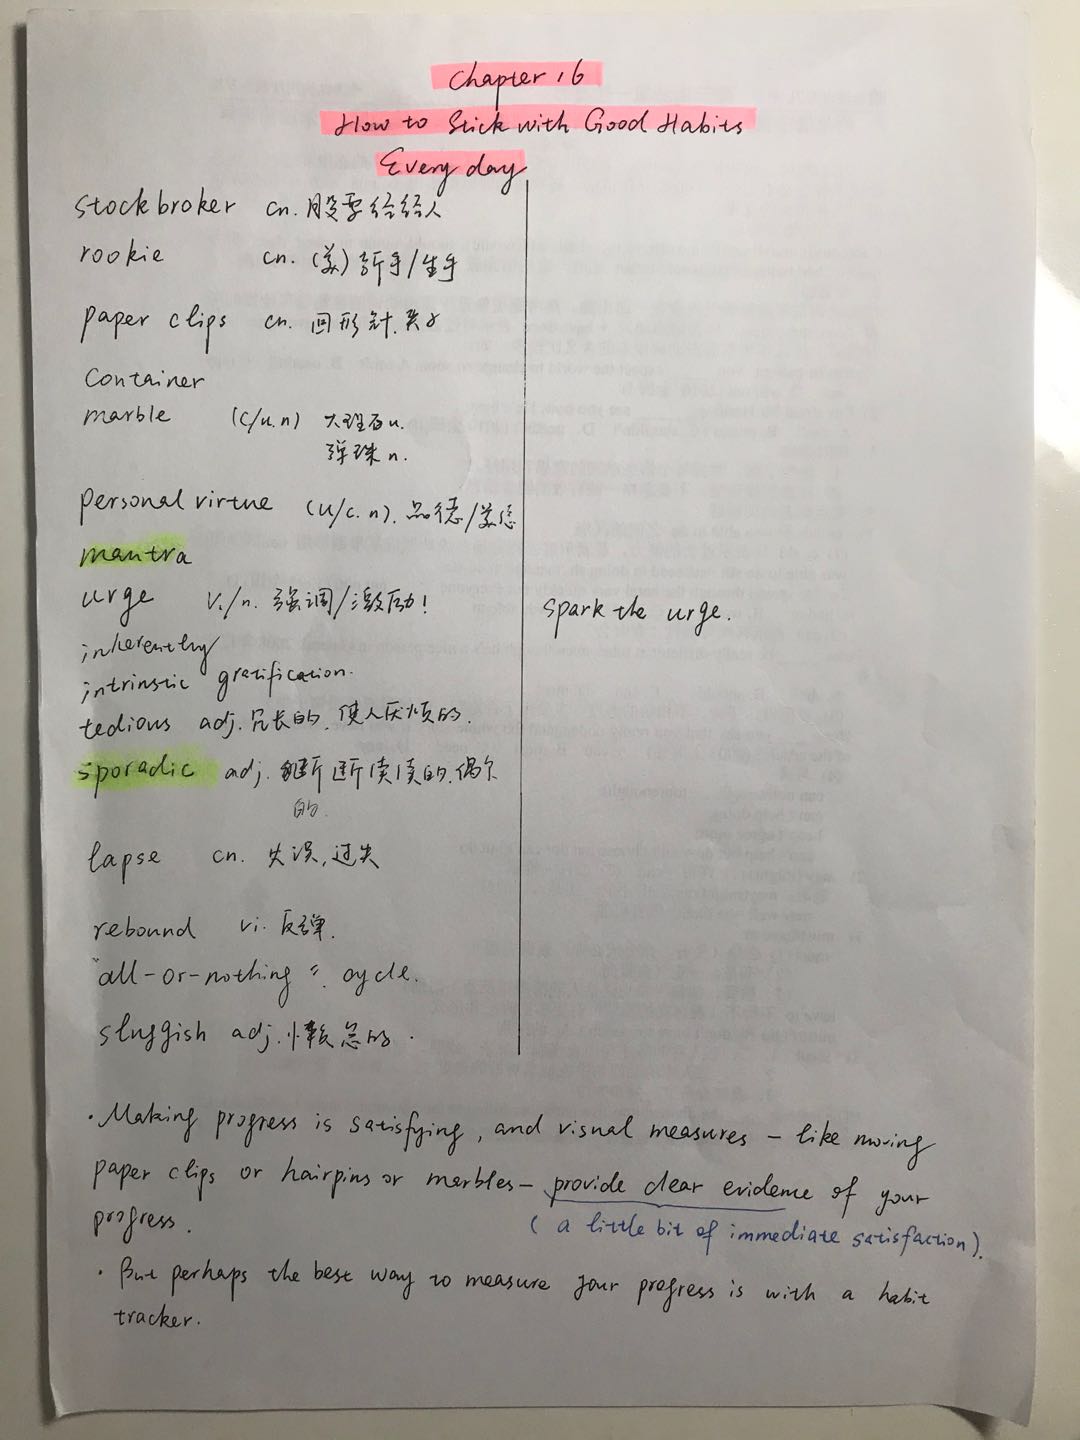 Chapter 16
How to Stick with Good Habits
Every day
stockbroker cn. 股票经纪人
rookie cn. (美) 新手/生手
paper clips cn. 回形针.夹子
Container
marble (c/u.n) 大理石u.
弹珠 n.
personal virtue (u/c.n). 品德/美德
mantra
urge v./n. 强调/激励!
spark the urge.
inherenthy
intrinstic gratification.
tedious adj. 冗长的. 使人厌烦的.
sporadic adj. 断断续续的.偶尔
的.
lapse cn. 失误,过失
rebound vi. 反弹.
"all-or-nothing". cycle.
sluggish adj. 懒怠的.
· Making progress is satisfying, and visual measures – like moving
paper clips or hairpins or marbles – provide clear evidence of your
progress.
( a little bit of immediate satisfaction).
· But perhaps the best way to measure your progress is with a habit
tracker.